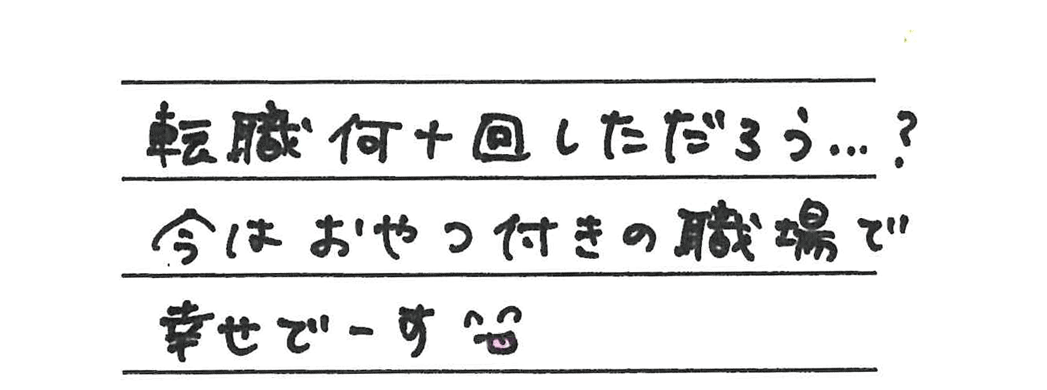 転職何十回しただろう…?
今はおやつ付きの職場で
幸せでーす